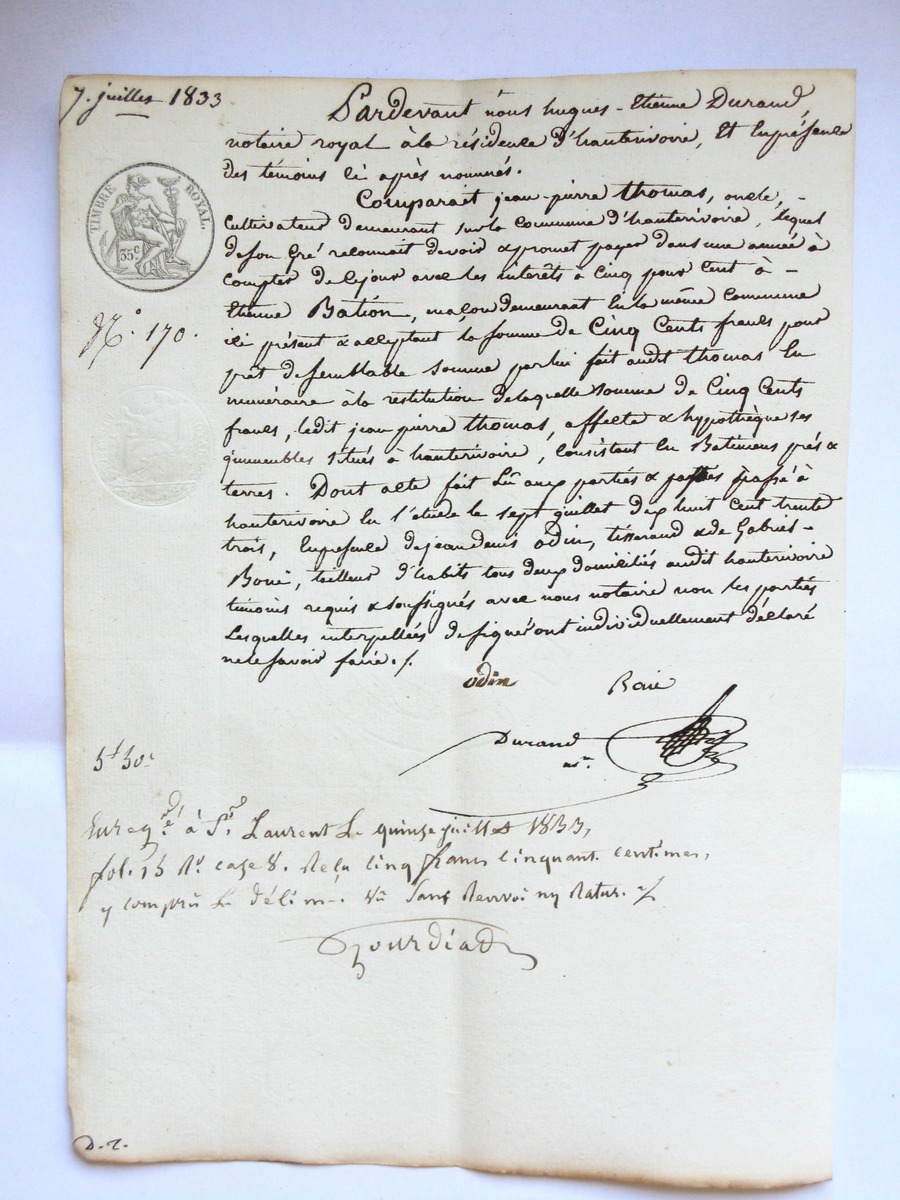 7. juillet 1833
Pardevant nous hugues-Etienne Durand,
notaire royal à la résidence d'hauterivoire, Et En présence
des témoins ci après nommés.
Comparait jean-pierre thomas, oncle,
Cultivateur demeurant sur la commune d'hauterivoire, lequel
de son Gré reconnait devoir & promet payer dans une année à
compter de ce jour avec les intérêts à Cinq pour Cent à -
TIMBRE ROYAL
35c
Etienne Bation, maçon demeurant En la même Commune
N.º 170.
ici présent & acceptant la somme de Cinq Cents francs pour
prêt de semblable somme par lui fait audit thomas En
numéraire à la restitution de laquelle somme de Cinq Cents
francs, ledit jean pierre thomas, affecte & hypothèque ses
immeubles situés à hauterivoire, Consistant En Batimens prés &
terres. Dont acte fait Lû aux parties & passé à
hauterivoire En l'étude le sept juillet dix huit cent trente
trois, En présence de jean denis odin, tisserand & de Gabriel-
Boué, tailleur d'habits tous deux domiciliés audit hauterivoire
témoins requis & soussignés avec nous notaire non les parties
Lesquelles interpellées de signer ont individuellement déclaré
ne le savoir faire ./.
odin Boué
Durand
nre.
5f 50c
Enregé. à St. Laurent Le quinze juillet 1833,
fol. 15 Ro. case 8. Reçu Cinq francs Cinquant. Centimes,
y compris Le déci me. Sans Renvoi ny
D. t.